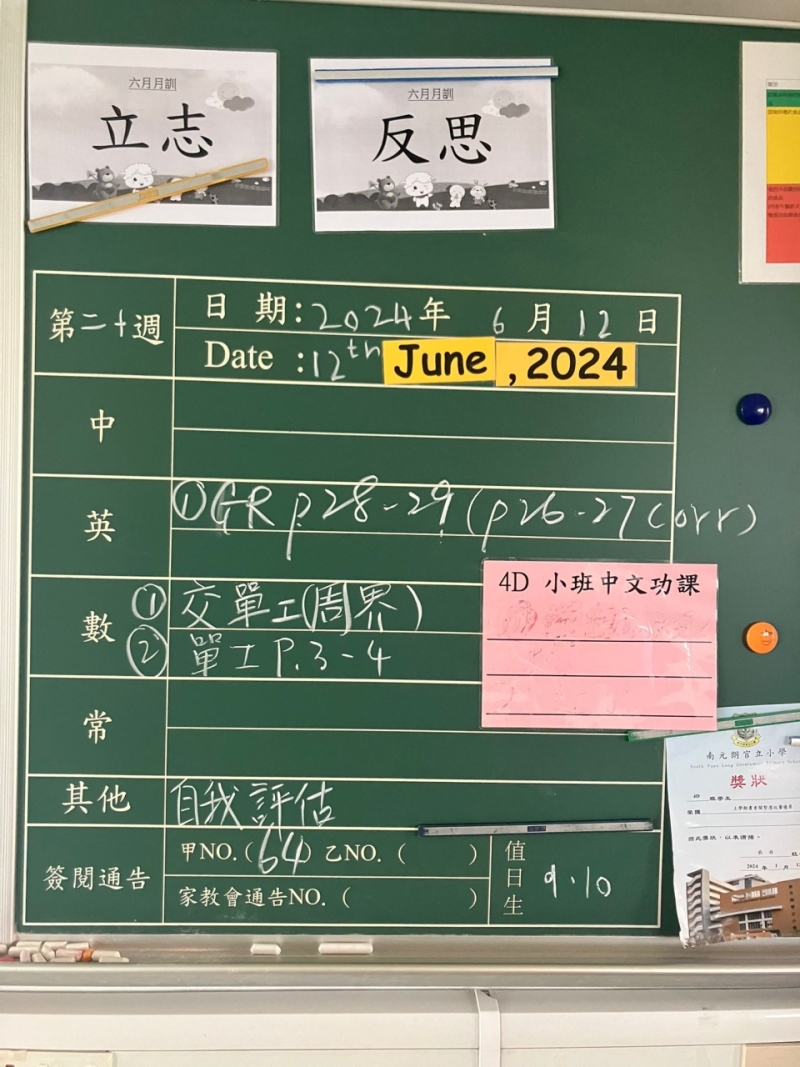 六月月訓
立志
六月月訓
反思
第二十週
日 期:2024年 6月12日
Date :12th June, 2024
中
英
①GR p.28-29(p26-27 Corr)
數
①交單工(周界)
②單工P.3-4
4D 小班中文功課
常
其他
自我評估
簽閱通告
甲NO.(64)乙NO.( )
家教會通告NO.( )
值日生
9.10
南元朗官立小學
獎狀